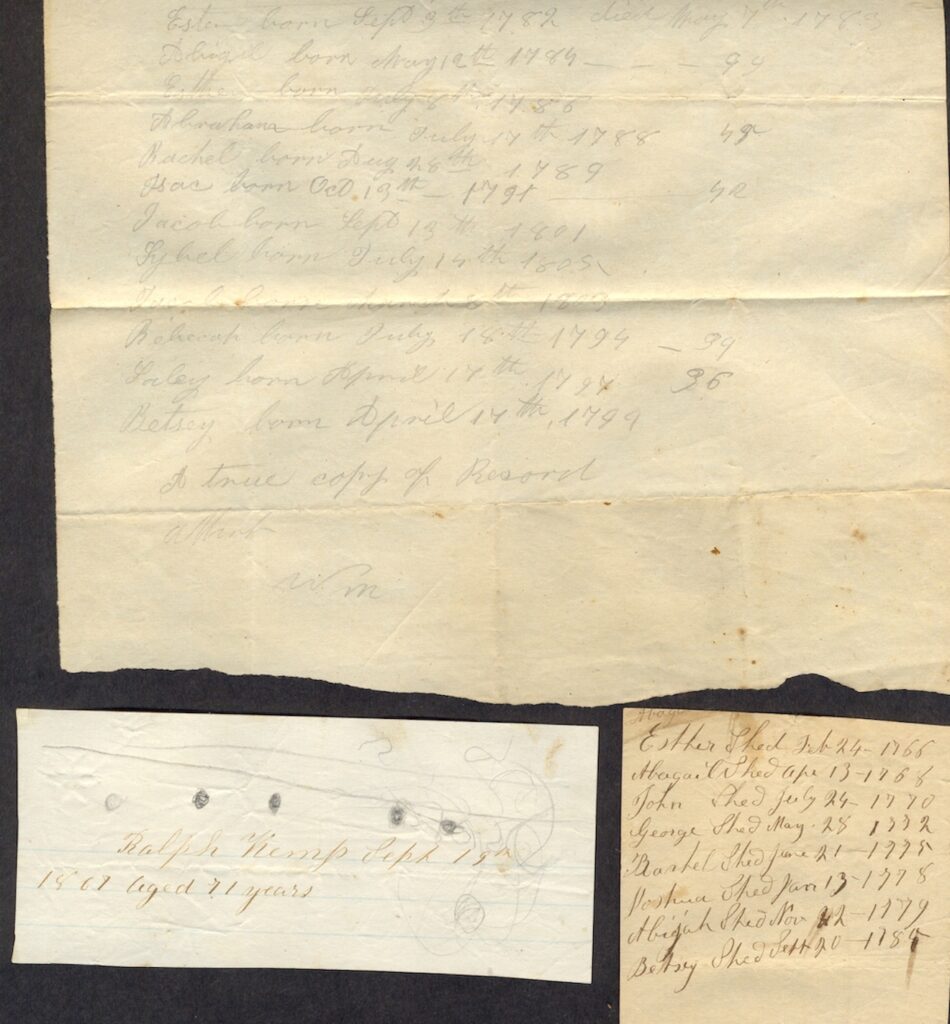 Ester born Sept 3th 1782 died May 7th 1783
Abigil born May 12th 1784 — — — 94
Esther born July 8th 1786
Abraham born July 17th 1788 42
Rachel born Aug 28th 1789
Isac born Oct 13th — 1791 — 42
Jacob born Sept 13th 1801
Sybel born July 14th 1805
Jacob born 1803
Rebecah born July 18th 1794 — 39
Saley born April 17th 1797 36
Betsey born April 17th, 1799
A true copy of Record
attest
Wm
Ralph Kemp Sept 19th
1807 aged 71 years
Abaga
Esther Shed Feb 24 - 1766
Abagail Shed apr 13 - 1768
John Shed July 24 - 1770
George Shed May 28 1772
Rachel Shed June 21 - 1775
Joshua Shed Jan 13 - 1778
Abijah Shed Nov 22 - 1779
Betsey Shed Sept 20 - 1785